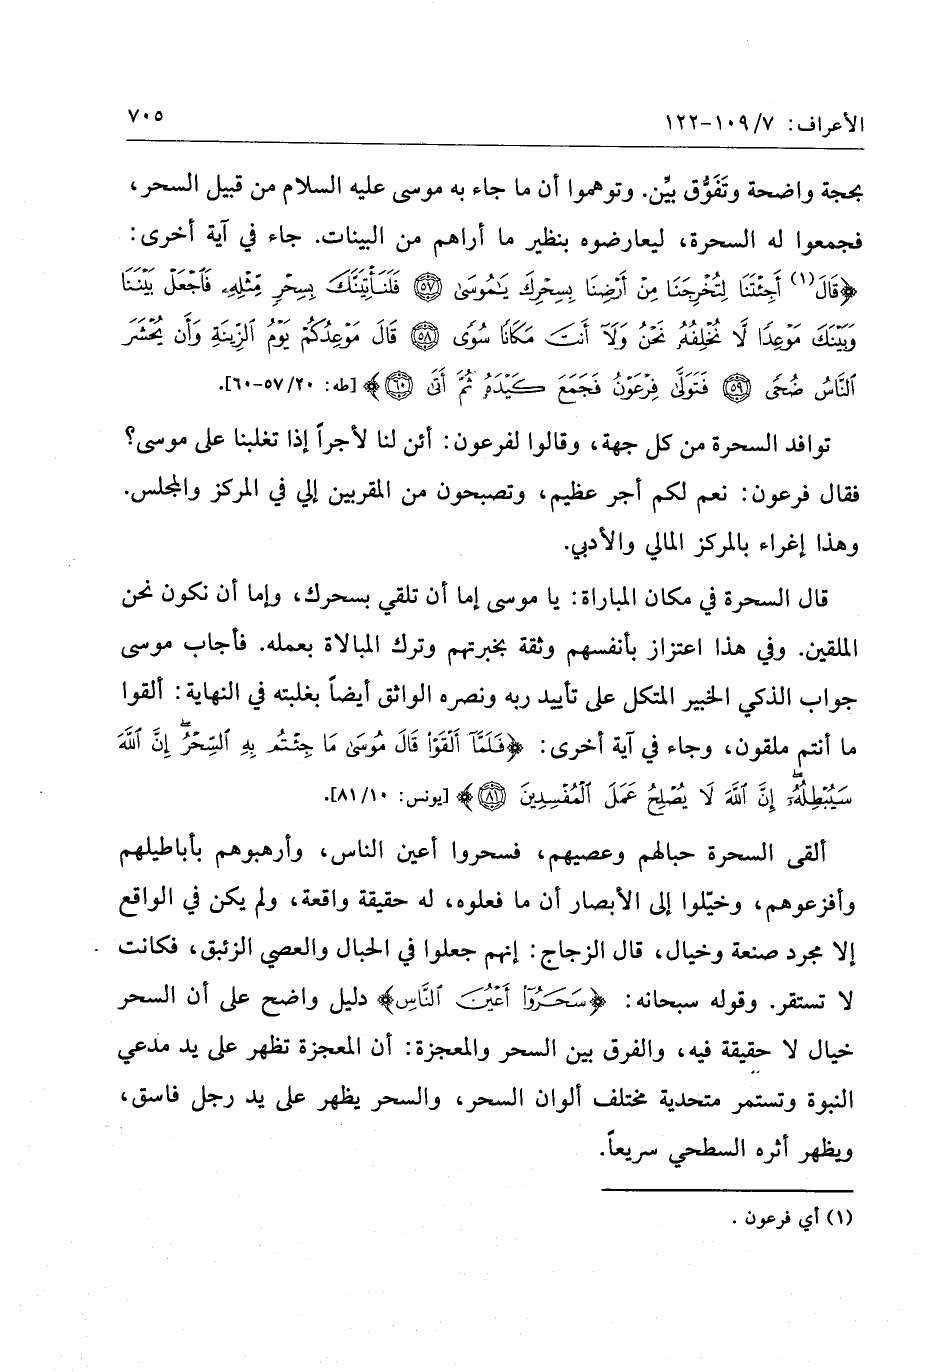 الأعراف: ٧/ ١٠٩-١٢٢ ٧٠٥
بحجة واضحة وتَفَوُّق بيِّن. وتوهموا أن ما جاء به موسى عليه السلام من قبيل السحر،
فجمعوا له السحرة، ليعارضوه بنظير ما أراهم من البينات. جاء في آية أخرى:
﴿قَالَ(١) أَجِئْتَنَا لِتُخْرِجَنَا مِنْ أَرْضِنَا بِسِحْرِكَ يَٰمُوسَىٰ ﴿٥٧﴾ فَلَنَأْتِيَنَّكَ بِسِحْرٍ مِّثْلِهِۦ فَٱجْعَلْ بَيْنَنَا
وَبَيْنَكَ مَوْعِدًا لَّا نُخْلِفُهُۥ نَحْنُ وَلَآ أَنتَ مَكَانًا سُوًى ﴿٥٨﴾ قَالَ مَوْعِدُكُمْ يَوْمُ ٱلزِّينَةِ وَأَن يُحْشَرَ
ٱلنَّاسُ ضُحًى ﴿٥٩﴾ فَتَوَلَّىٰ فِرْعَوْنُ فَجَمَعَ كَيْدَهُۥ ثُمَّ أَتَىٰ ﴿٦٠﴾﴾ [طه: ٢٠/ ٥٧-٦٠].
توافد السحرة من كل جهة، وقالوا لفرعون: أئن لنا لأجراً إذا تغلبنا على موسى؟
فقال فرعون: نعم لكم أجر عظيم، وتصبحون من المقربين إلي في المركز والمجلس.
وهذا إغراء بالمركز المالي والأدبي.
قال السحرة في مكان المباراة: يا موسى إما أن تلقي بسحرك، وإما أن نكون نحن
الملقين. وفي هذا اعتزاز بأنفسهم وثقة بخبرتهم وترك المبالاة بعمله. فأجاب موسى
جواب الذكي الخبير المتكل على تأييد ربه ونصره الواثق أيضاً بغلبته في النهاية: ألقوا
ما أنتم ملقون، وجاء في آية أخرى: ﴿فَلَمَّآ أَلْقَوْا۟ قَالَ مُوسَىٰ مَا جِئْتُم بِهِ ٱلسِّحْرُ ۖ إِنَّ ٱللَّهَ
سَيُبْطِلُهُۥٓ ۖ إِنَّ ٱللَّهَ لَا يُصْلِحُ عَمَلَ ٱلْمُفْسِدِينَ ﴿٨١﴾﴾ [يونس: ١٠/ ٨١].
ألقى السحرة حبالهم وعصيهم، فسحروا أعين الناس، وأرهبوهم بأباطيلهم
وأفزعوهم، وخيّلوا إلى الأبصار أن ما فعلوه، له حقيقة واقعة، ولم يكن في الواقع
إلا مجرد صنعة وخيال، قال الزجاج: إنهم جعلوا في الحبال والعصي الزئبق، فكانت
لا تستقر. وقوله سبحانه: ﴿سَحَرُوٓا۟ أَعْيُنَ ٱلنَّاسِ﴾ دليل واضح على أن السحر
خيال لا حقيقة فيه، والفرق بين السحر والمعجزة: أن المعجزة تظهر على يد مدعي
النبوة وتستمر متحدية مختلف ألوان السحر، والسحر يظهر على يد رجل فاسق،
ويظهر أثره السطحي سريعاً.
(١) أي فرعون .